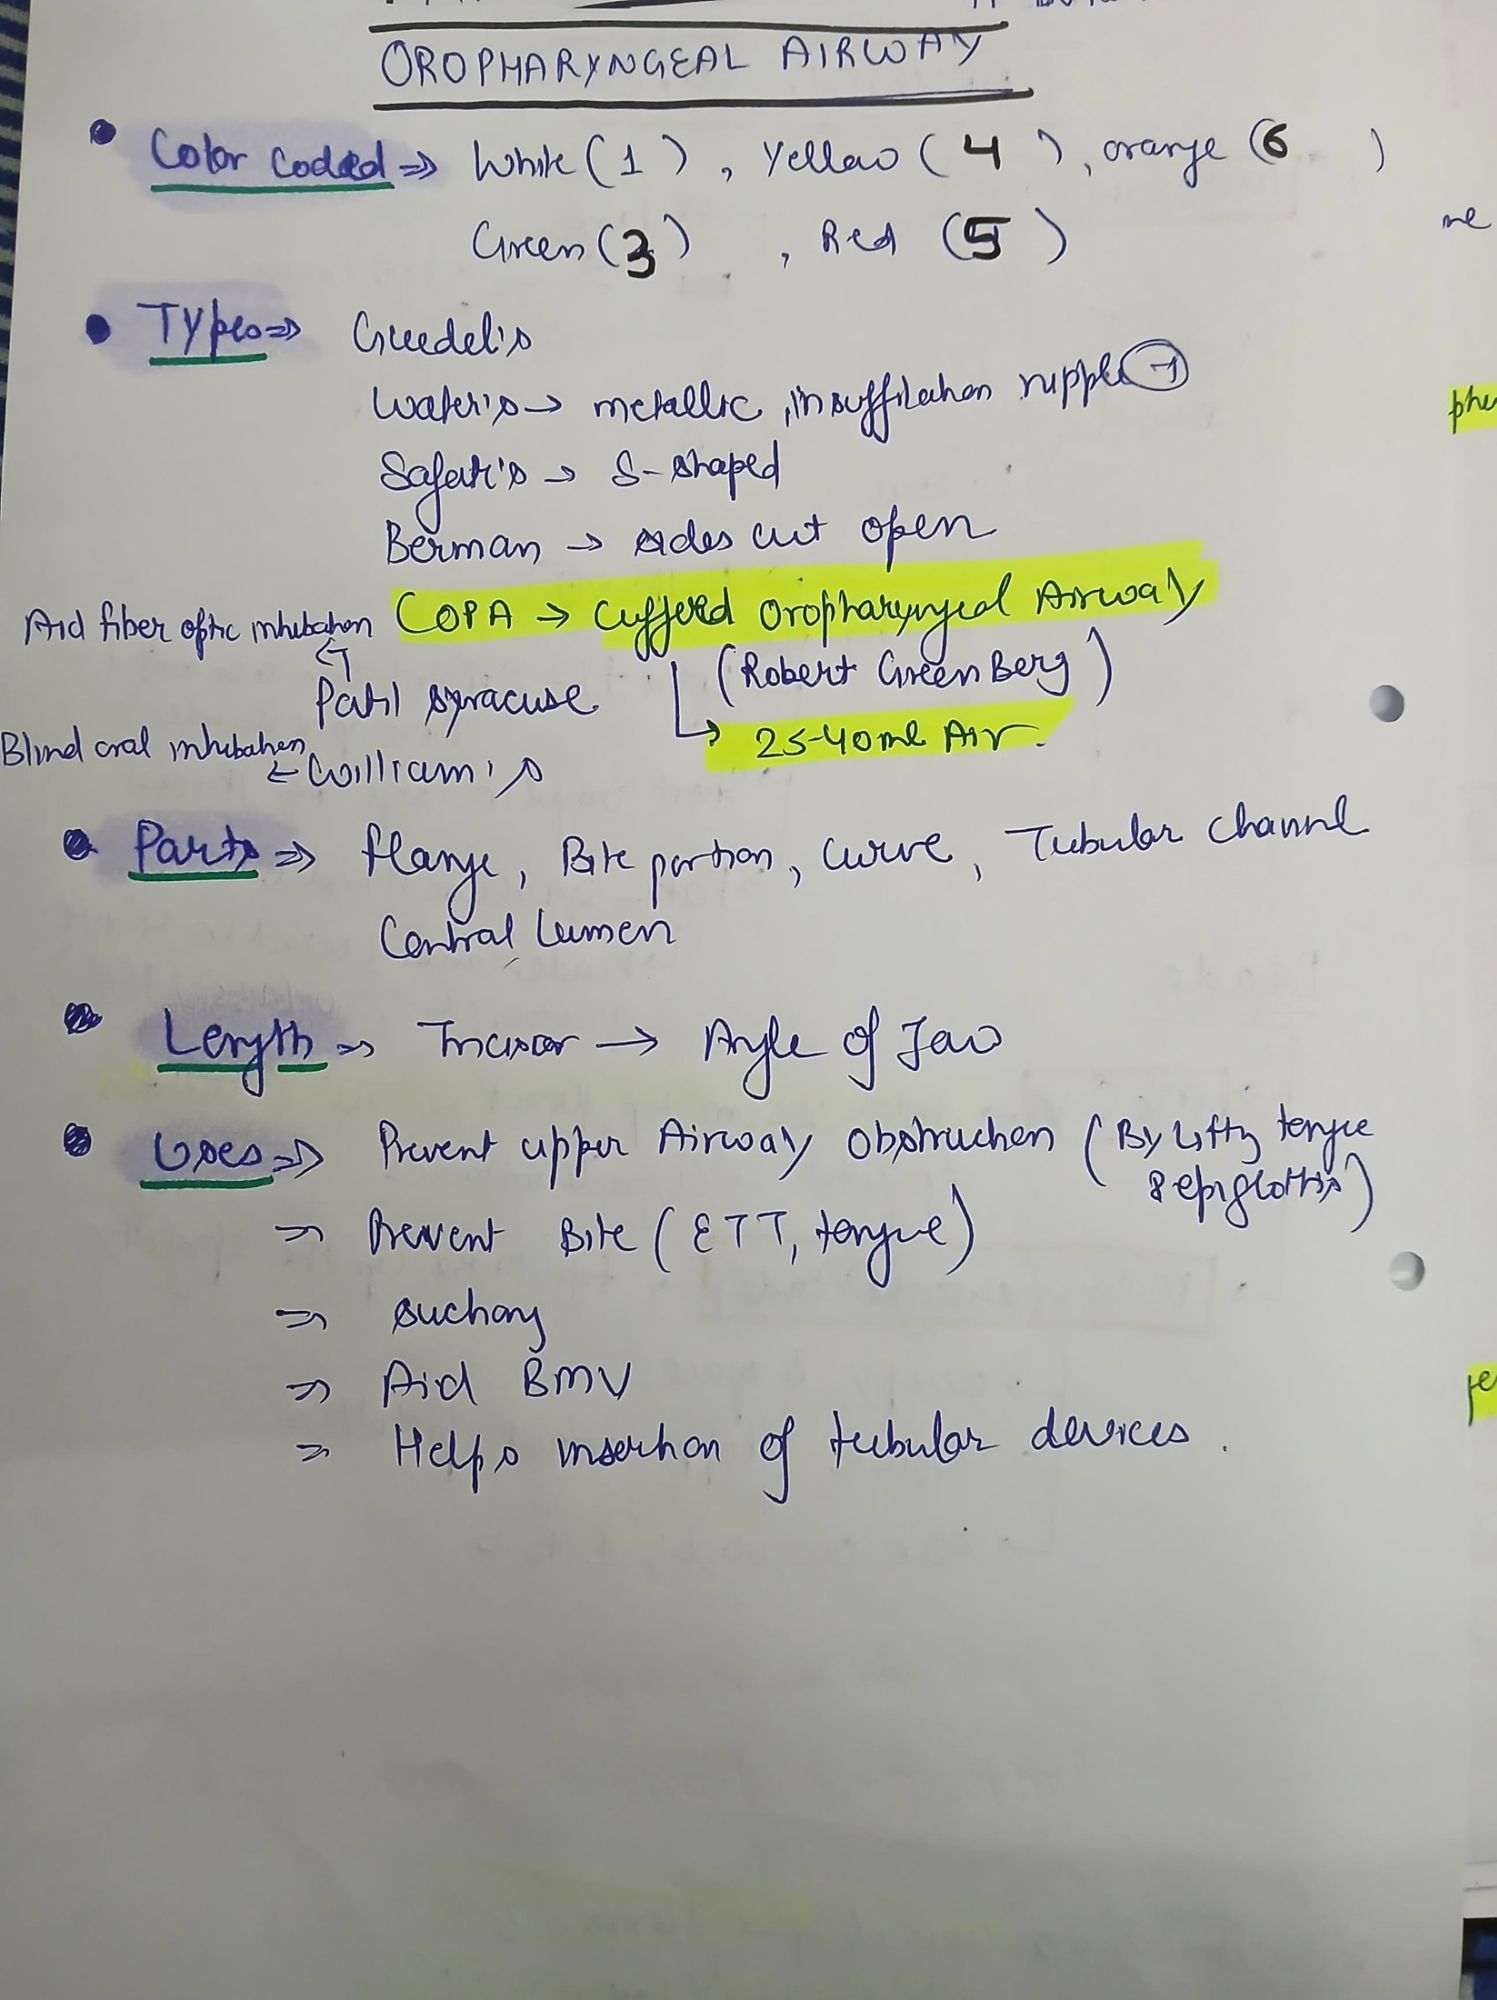 OROPHARYNGEAL AIRWAY
• Color Coded ⇒ White (1), Yellow (4), orange (6)
Green (3), Red (5)
• Types ⇒ Guedel's
Water's → metallic, insufflation nipple +
Safar's → S-shaped
Berman → sides cut open
COPA → Cuffered Oropharyngeal Airway
Aid fiber optic intubation
(Robert GreenBerg)
← Patil syracuse
→ 25-40ml Air.
Blind oral intubation
← William's
• Parts ⇒ flange, Bite portion, curve, Tubular channel
Central lumen
• Length ⇒ Incisor → Angle of Jaw
• Uses ⇒ Prevent upper Airway obstruction (By lifting tongue
& epiglottis)
⇒ Prevent Bite (ETT, tongue)
⇒ suctiong
⇒ Aid BMV
⇒ Helps insertion of tubular devices.
me